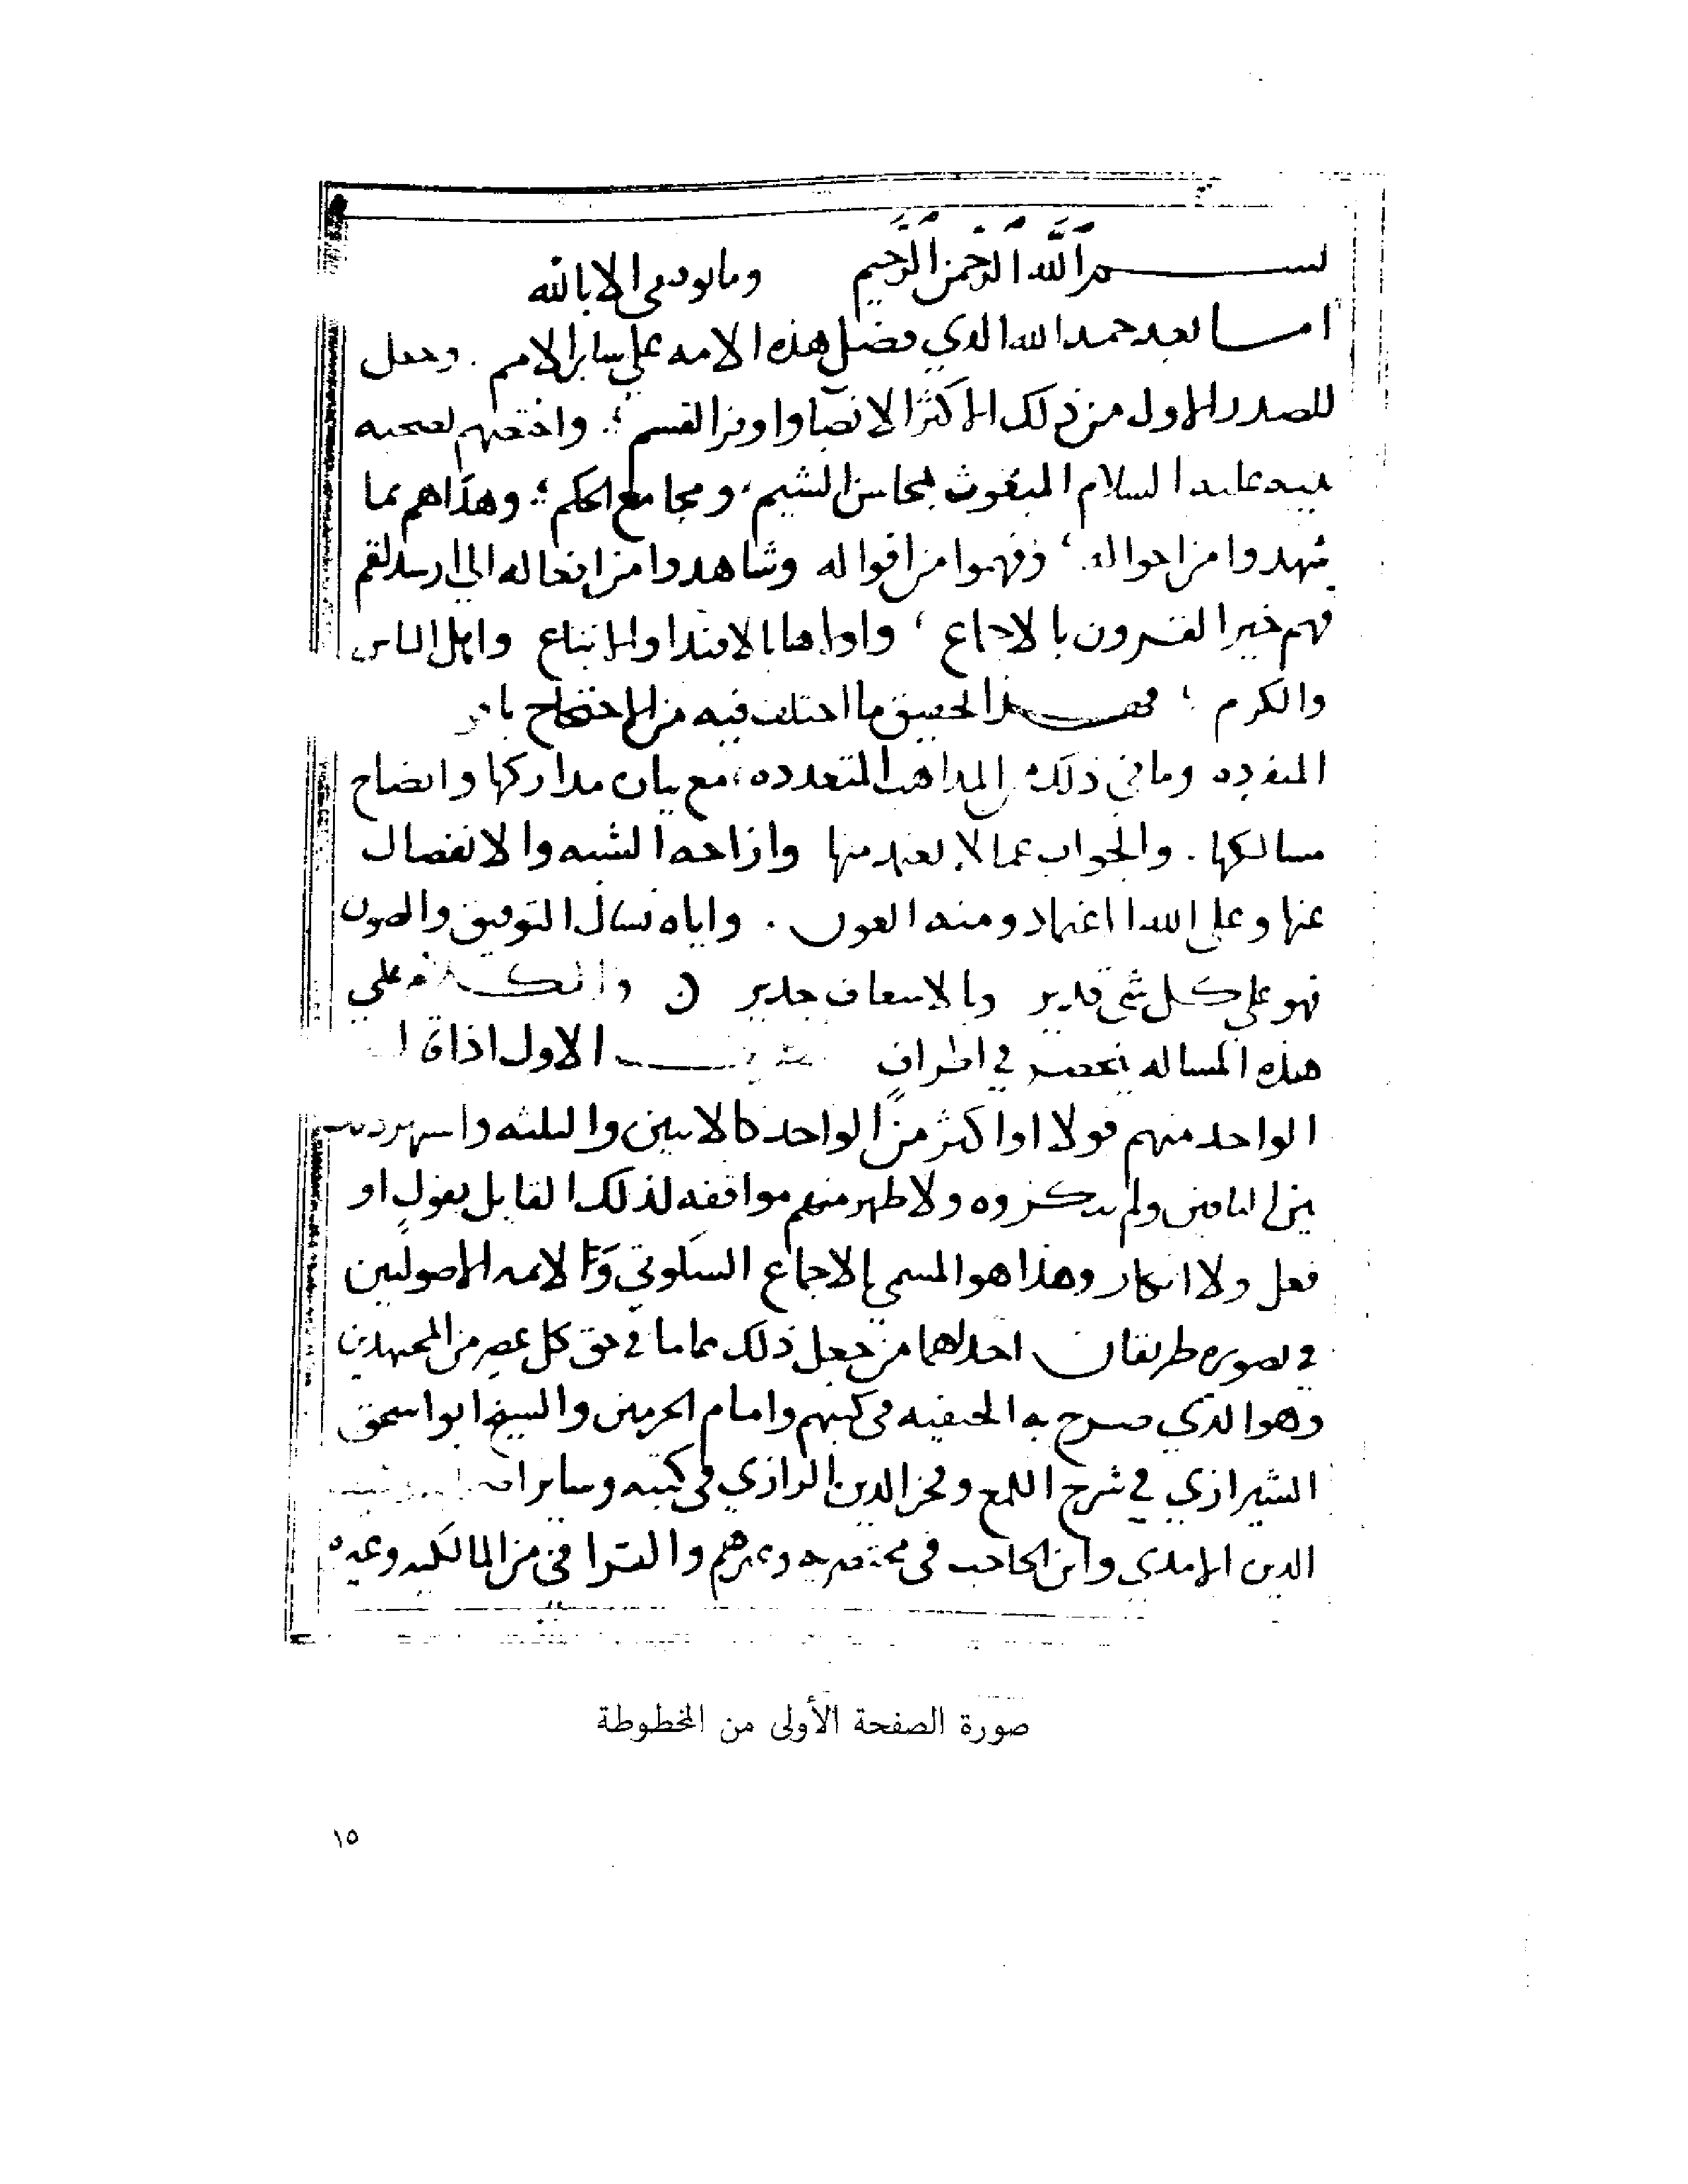 بسم الله الرحمن الرحيم وما توفيقي الا بالله
اما بعد حمد الله الذي فضل هذه الامه علي ساير الامم . وجعل
للصدر الاول من ذلك اكثر الانصبا واوفر القسم . واختصهم بصحبه
نبيه عليه السلام المبعوث بمحاسن الشيم ، ومجامع الحكم ؛ وهداهم بما
شهدوا من احواله . وفهموا من اقواله وشاهدوا من افعاله الي ارشد لقم
فهم خير القرون بالاجماع ، واولاها بالاقتدا والاتباع واهل الباس
والكرم ، فهذا تحقيق ما اختلف فيه من الاحتجاج
المنفرده وما في ذلك من المذاهب المتعدده ، مع بيان مداركها وايضاح
مسالكها . والجواب عما لا يعتمد منها وازاحه الشبه والانفصال
عنها وعلي الله اعتماد ومنه العون . واياه نسال التوفيق والصون
فهو علي كل شي قدير وبالاسعاف جدير والكلام علي
هذه المساله ينحصر في اطراف الاول اذا قال
الواحد منهم قولا او اكثر من الواحد كالاثنين والثلثه واشتهر ذلك
بين الباقين ولم ينكروه ولا ظهر منهم موافقه لذلك القايل بقول او
فعل ولا انكار وهذا هو المسمي بالاجماع السكوتي وللايمه الاصوليين
في تصويره طريقان احداهما من جعل ذلك عاما في حق كل عصر من المجتهدين
وهو الذي صرح به الحنفيه في كتبهم وامام الحرمين والشيخ ابو اسحق
الشيرازي في شرح اللمع وفخر الدين الرازي في كتبه وساير
الدين الامدي وابن الحاجب في مختصريه وغيرهم والقرافي من المالكيه وغيره
صورة الصفحة الأولى من المخطوطة
١٥